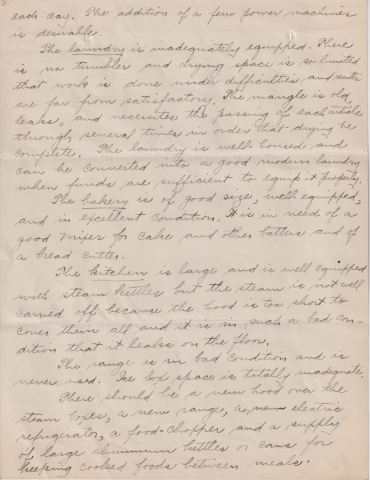 each day. The addition of a few power machines
is desirable.
The laundry is inadequately equipped. There
is no tumbler and drying space is so limited
that work is done under difficulties and results
are far from satisfactory. The mangle is old,
leaks, and necessitates the passing of each article
through, several times in order that drying be
complete. The laundry is well housed and
can be converted into a good modern laundry
when funds are sufficient to equip it properly.
The bakery is of good size, well equipped,
and in excellent condition. It is in need of a
good mixer for cake and other batters and of
a bread cutter.
The kitchen is large and is well equipped
with steam kettles but the steam is not well
carried off because the hood is too short to
cover them all and it is in such a bad con-
dition that it leaks on the floor.
The range is in bad condition and is
never used. Ice box space is totally inadequate.
There should be a new hood over the
steam boxes, a new range, a new electric
refrigerator, a food-chopper and a supply
of large aluminum kettles or cans for
keeping cooked foods between meals.